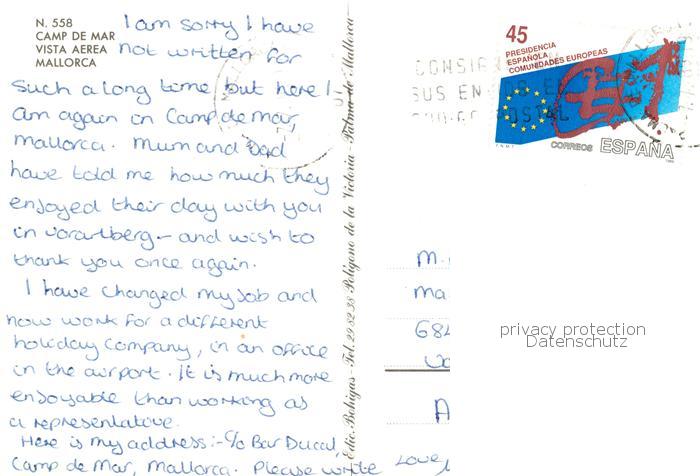 N. 558
CAMP DE MAR
VISTA AEREA
MALLORCA
I am sorry I have
not written for
such a long time but here I
am again in Camp de mar,
mallorca. Mum and Dad
have told me how much they
enjoyed their day with you
in vorarlberg - and wish to
thank you once again.
I have changed my job and
now work for a different
holiday company, in an office
in the airport. It is much more
enjoyable than working as
a representative.
Here is my address:- c/o Bar Ducal,
Camp de Mar, Mallorca. Please write
Love,
Edic. Bohigas - Tel. 29 82 38 Polígono de la Victoria - Palma de Mallorca
45
PRESIDENCIA
ESPAÑOLA
COMUNIDADES EUROPEAS
CORREOS ESPAÑA
CONSIG
SUS EN
POSTAL
M.
ma
684
A
privacy protection
Datenschutz